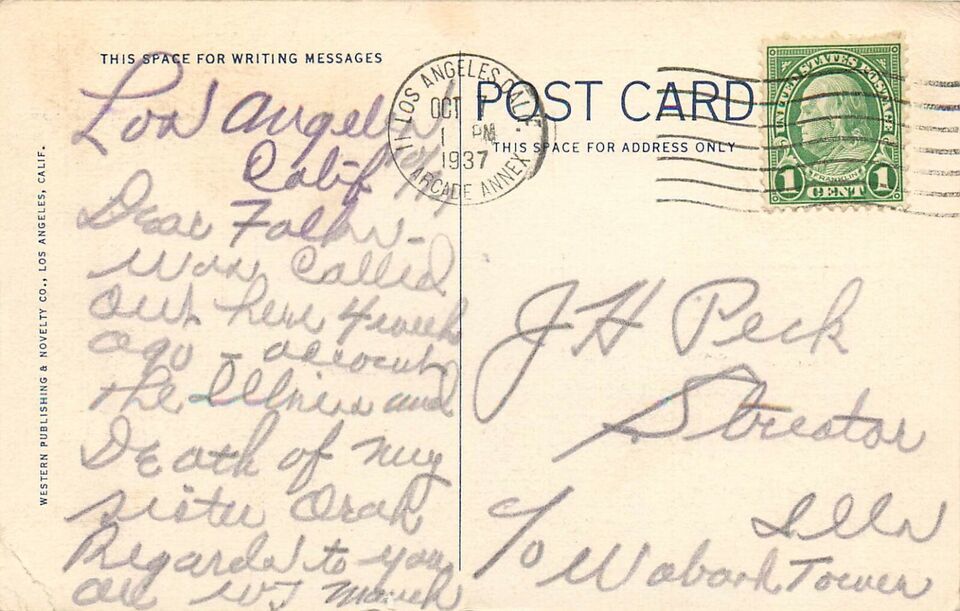 THIS SPACE FOR WRITING MESSAGES
Los Angeles
Calif
Dear Folks -
Was Called
out here 4 week
ago - account
the Illness and
Death of my
sister Orah
Regards to you
all WJ March
WESTERN PUBLISHING & NOVELTY CO., LOS ANGELES, CALIF.
LOS ANGELES, CALIF.
OCT
1 PM
1937
ARCADE ANNEX
POST CARD
THIS SPACE FOR ADDRESS ONLY
UNITED STATES POSTAGE
FRANKLIN
1 CENT 1
J H Peck
Streator
Ills
c/o Wabash Tower